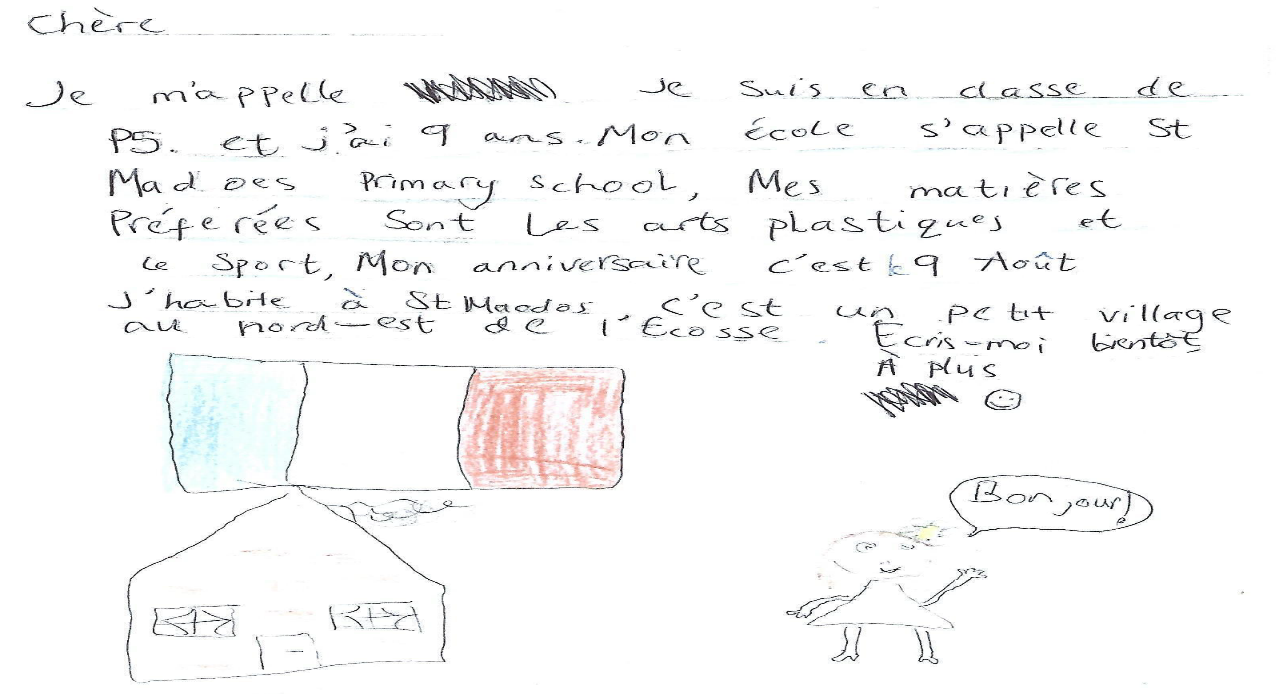 Chère
Je m'appelle Je suis en classe de
P5. et j'ai 9 ans. Mon école s'appelle St
Madoes Primary School, Mes matières
Préférées sont les arts plastiques et
le Sport, Mon anniversaire c'est le 9 Août
J'habite à St Maedos, c'est un petit village
au nord-est de l'Ecosse. Ecris-moi bientôt
À plus
Bonjour!